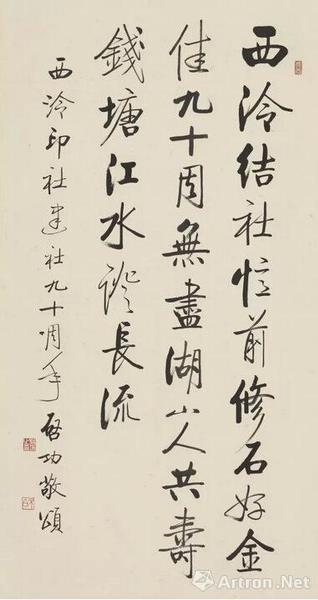 西泠結社憶前修石好金
佳九十周無盡湖山人共壽
錢塘江水證長流
西泠印社建社九十周年 啓功敬頌
雅昌藝術網
Artron.Net